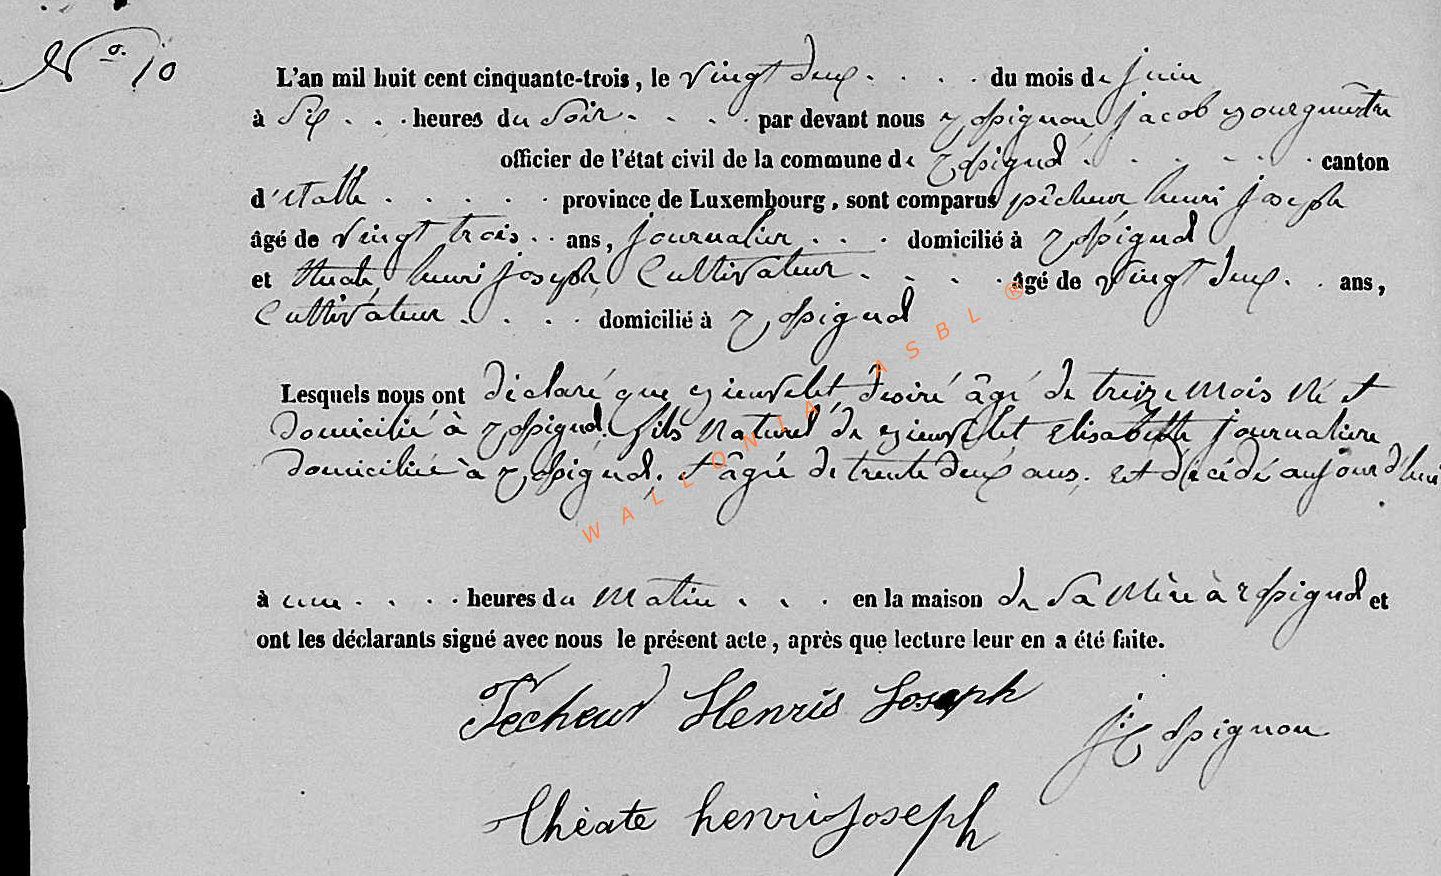 N.° 10
L'an mil huit cent cinquante-trois, le vingt deux . . . . du mois de juin
à Six . . . heures du Soir . . . . par devant nous Rossignon jacob Bourgmestre
officier de l'état civil de la commune de Rossignol . . . . . . canton
d'etalle . . . . . province de Luxembourg, sont comparus pêcheur henri joseph
âgé de vingt trois . . ans, journalier . . . domicilié à Rossignol
et théate henri joseph Cultivateur . . . . âgé de vingt deux . . ans,
Cultivateur . . . . domicilié à Rossignol
Lesquels nous ont déclaré que desiré âgé de treize Mois Né et
domicilié à Rossignol. fils Naturel de Elisabeth journalière
domiciliée à Rossignol. et âgée de trente deux ans. est décédé aujourd'hui
à une . . . . heures du Matin . . . en la maison de Sa Mère à Rossignol et
ont les déclarants signé avec nous le présent acte, après que lecture leur en a été faite.
Pecheur Henris Joseph
j: Rossignon
Théate henri joseph
WALLONIA ASBL ®